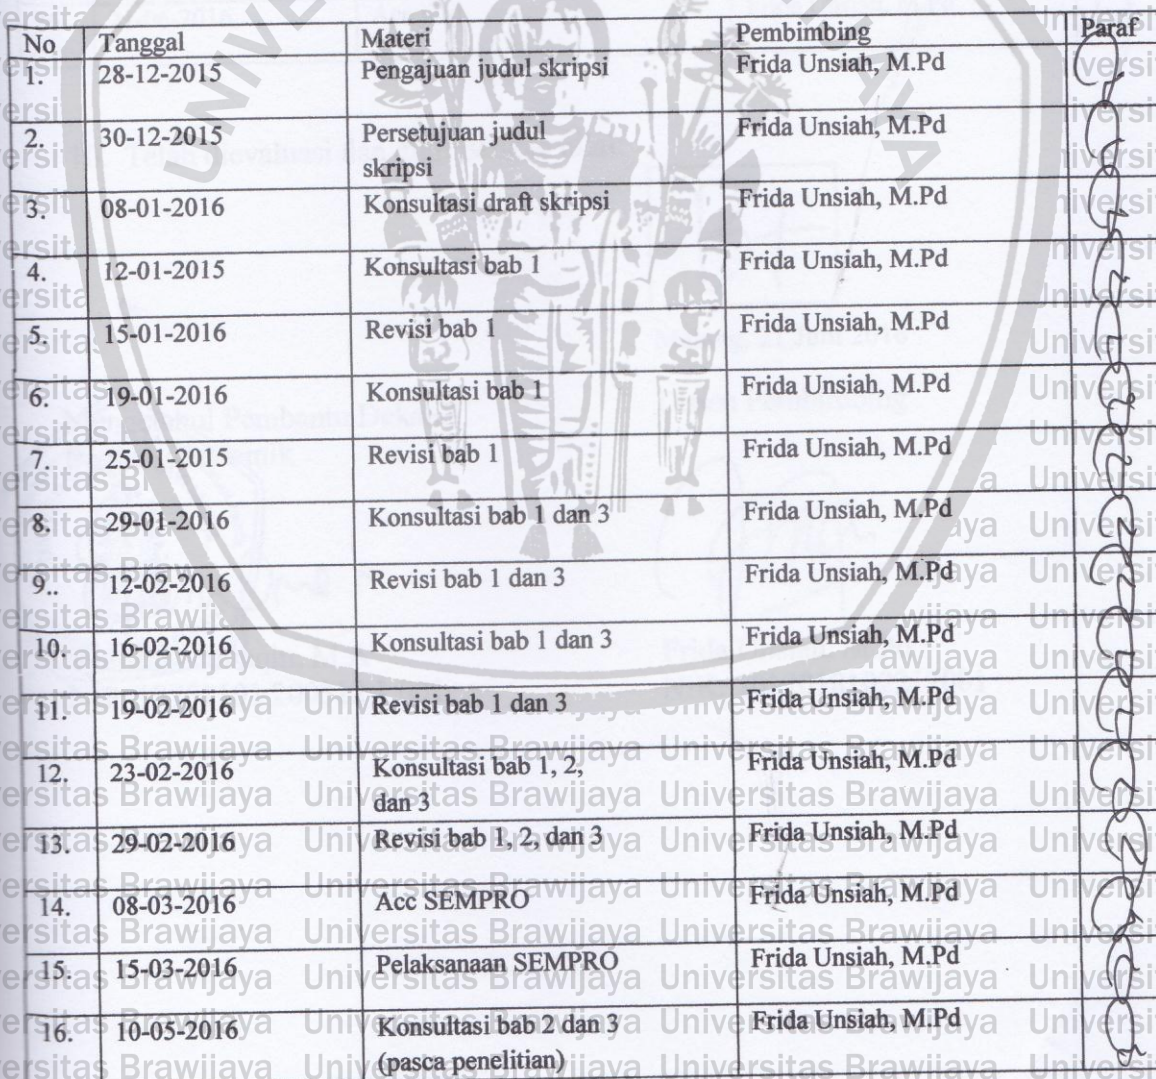 No Tanggal Materi Pembimbing Paraf
1. 28-12-2015 Pengajuan judul skripsi Frida Unsiah, M.Pd
2. 30-12-2015 Persetujuan judul Frida Unsiah, M.Pd
skripsi
3. 08-01-2016 Konsultasi draft skripsi Frida Unsiah, M.Pd
4. 12-01-2015 Konsultasi bab 1 Frida Unsiah, M.Pd
5. 15-01-2016 Revisi bab 1 Frida Unsiah, M.Pd
6. 19-01-2016 Konsultasi bab 1 Frida Unsiah, M.Pd
7. 25-01-2015 Revisi bab 1 Frida Unsiah, M.Pd
8. 29-01-2016 Konsultasi bab 1 dan 3 Frida Unsiah, M.Pd
9.. 12-02-2016 Revisi bab 1 dan 3 Frida Unsiah, M.Pd
10. 16-02-2016 Konsultasi bab 1 dan 3 Frida Unsiah, M.Pd
11. 19-02-2016 Revisi bab 1 dan 3 Frida Unsiah, M.Pd
12. 23-02-2016 Konsultasi bab 1, 2, Frida Unsiah, M.Pd
dan 3
13. 29-02-2016 Revisi bab 1, 2, dan 3 Frida Unsiah, M.Pd
14. 08-03-2016 Acc SEMPRO Frida Unsiah, M.Pd
15. 15-03-2016 Pelaksanaan SEMPRO Frida Unsiah, M.Pd
16. 10-05-2016 Konsultasi bab 2 dan 3 Frida Unsiah, M.Pd
(pasca penelitian)